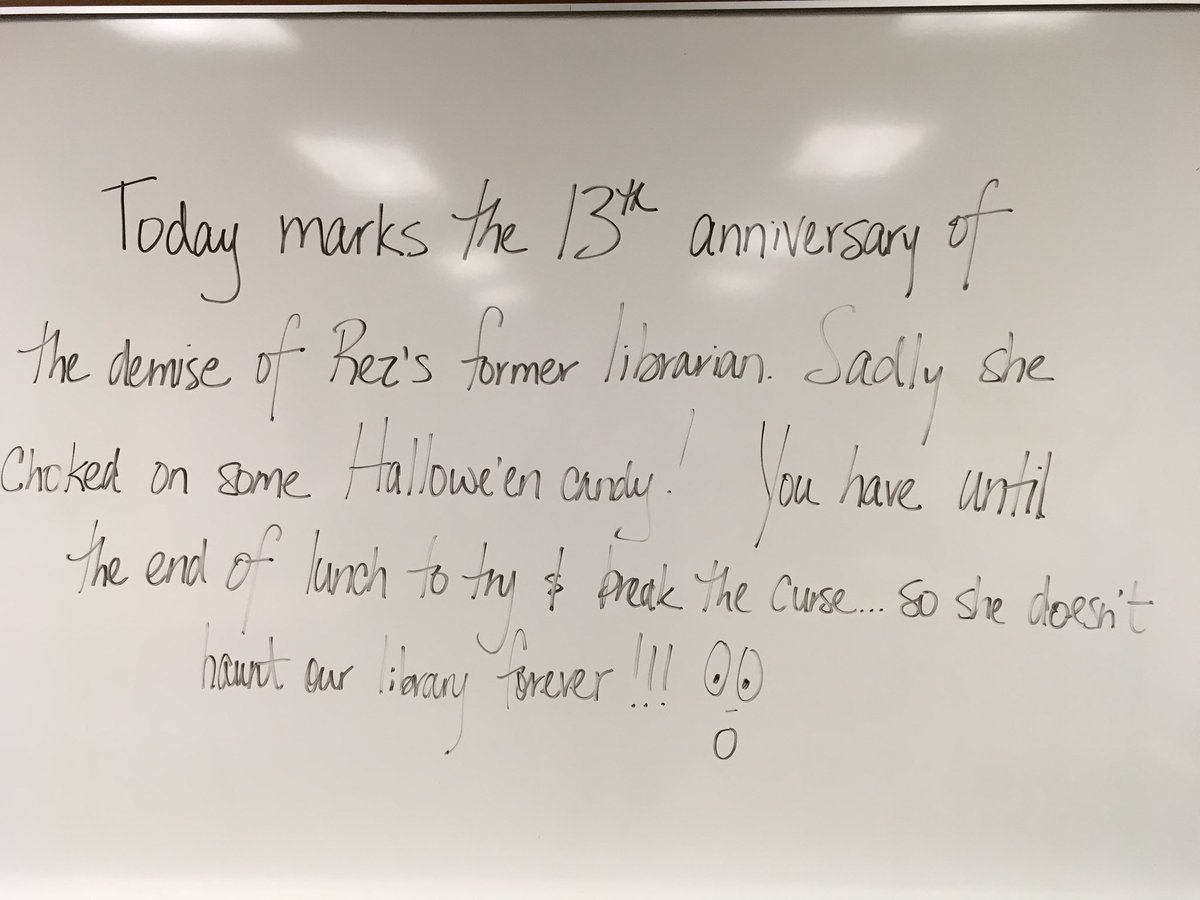 Today marks the 13th anniversary of
the demise of Rez's former librarian. Sadly she
Choked on some Hallowe'en candy! You have until
the end of lunch to try & break the curse... so she doesn't
haunt our library forever!!!